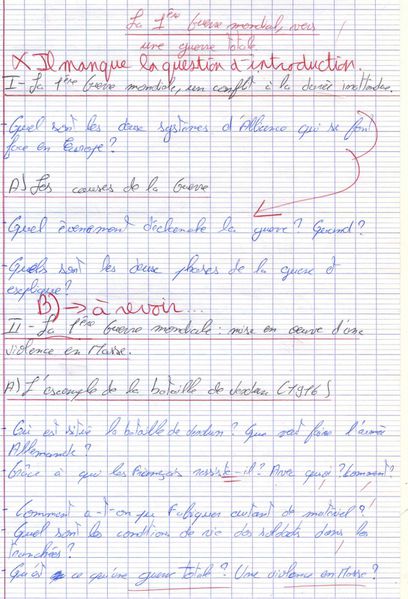 La 1ère Guerre mondial, vers
une guerre totale
X Il manque la question d'introduction.
I - La 1ère Guerre mondiale, un conflit à la durée inattendue.
- Quel sont les deux systèmes d'Alliance qui se font
face en Europe ?
A) Les causes de la Guerre
- Quel évènement déclenche la guerre ? Quand ?
- Quels sont les deux phases de la guerre et
explique ?
B) → à revoir...
II - La 1ère Guerre mondiale : mise en œuvre d'une
violence en Masse.
A) L'exemple de la bataille de verdun (1916)
- Où est située la bataille de verdun ? Que veut faire l'armée
Allemande ?
- Grâce à qui les Français resiste-il ? Avec quoi ? Comment ?
- Comment a-t-on pu Fabriquer autant de matériel ?
- Quel sont les conditions de vie des soldats dans les
tranchées ?
- Qu'est ce qu'une guerre totale ? Une violence en Masse ?